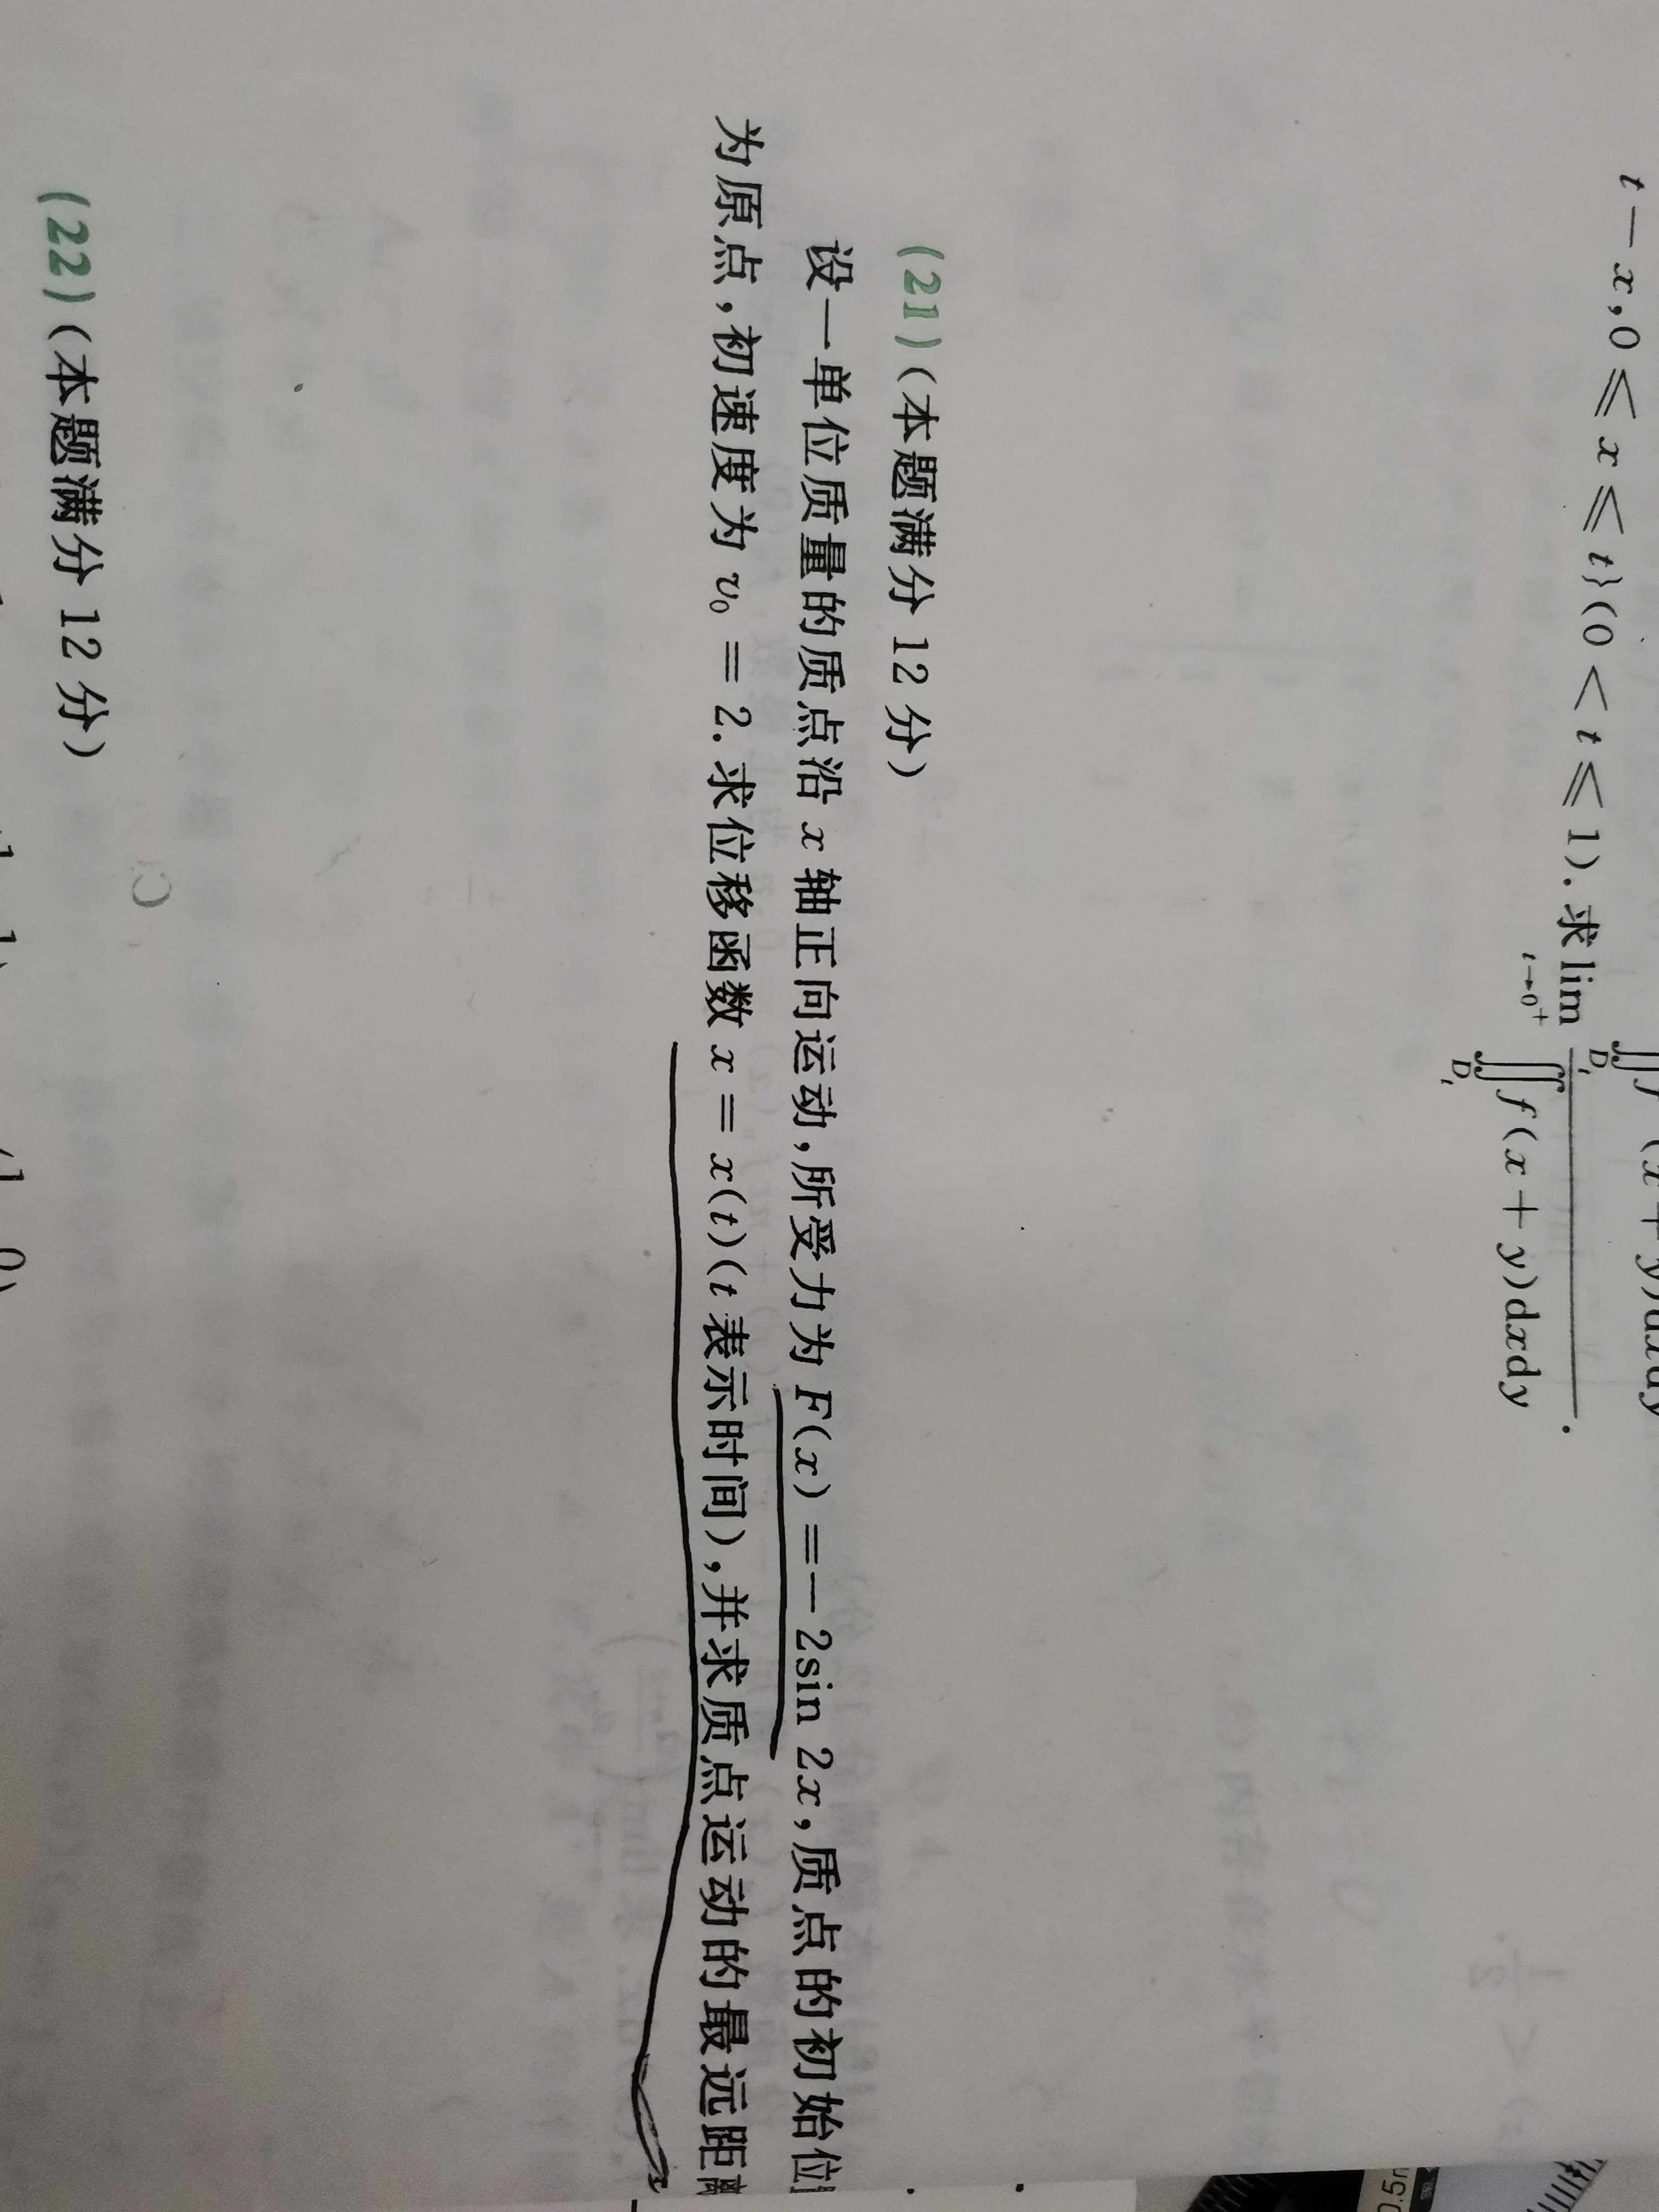 t − x, 0 ⩽ x ⩽ t}(0 < t ⩽ 1). 求 lim_{t→0⁺} ∬_{D_t} f(x + y)dxdy.
(21)(本题满分 12 分)
设一单位质量的质点沿 x 轴正向运动,所受力为 F(x) = − 2sin 2x,质点的初始位
为原点,初速度为 v₀ = 2. 求位移函数 x = x(t)(t 表示时间),并求质点运动的最远距离
(22)(本题满分 12 分)